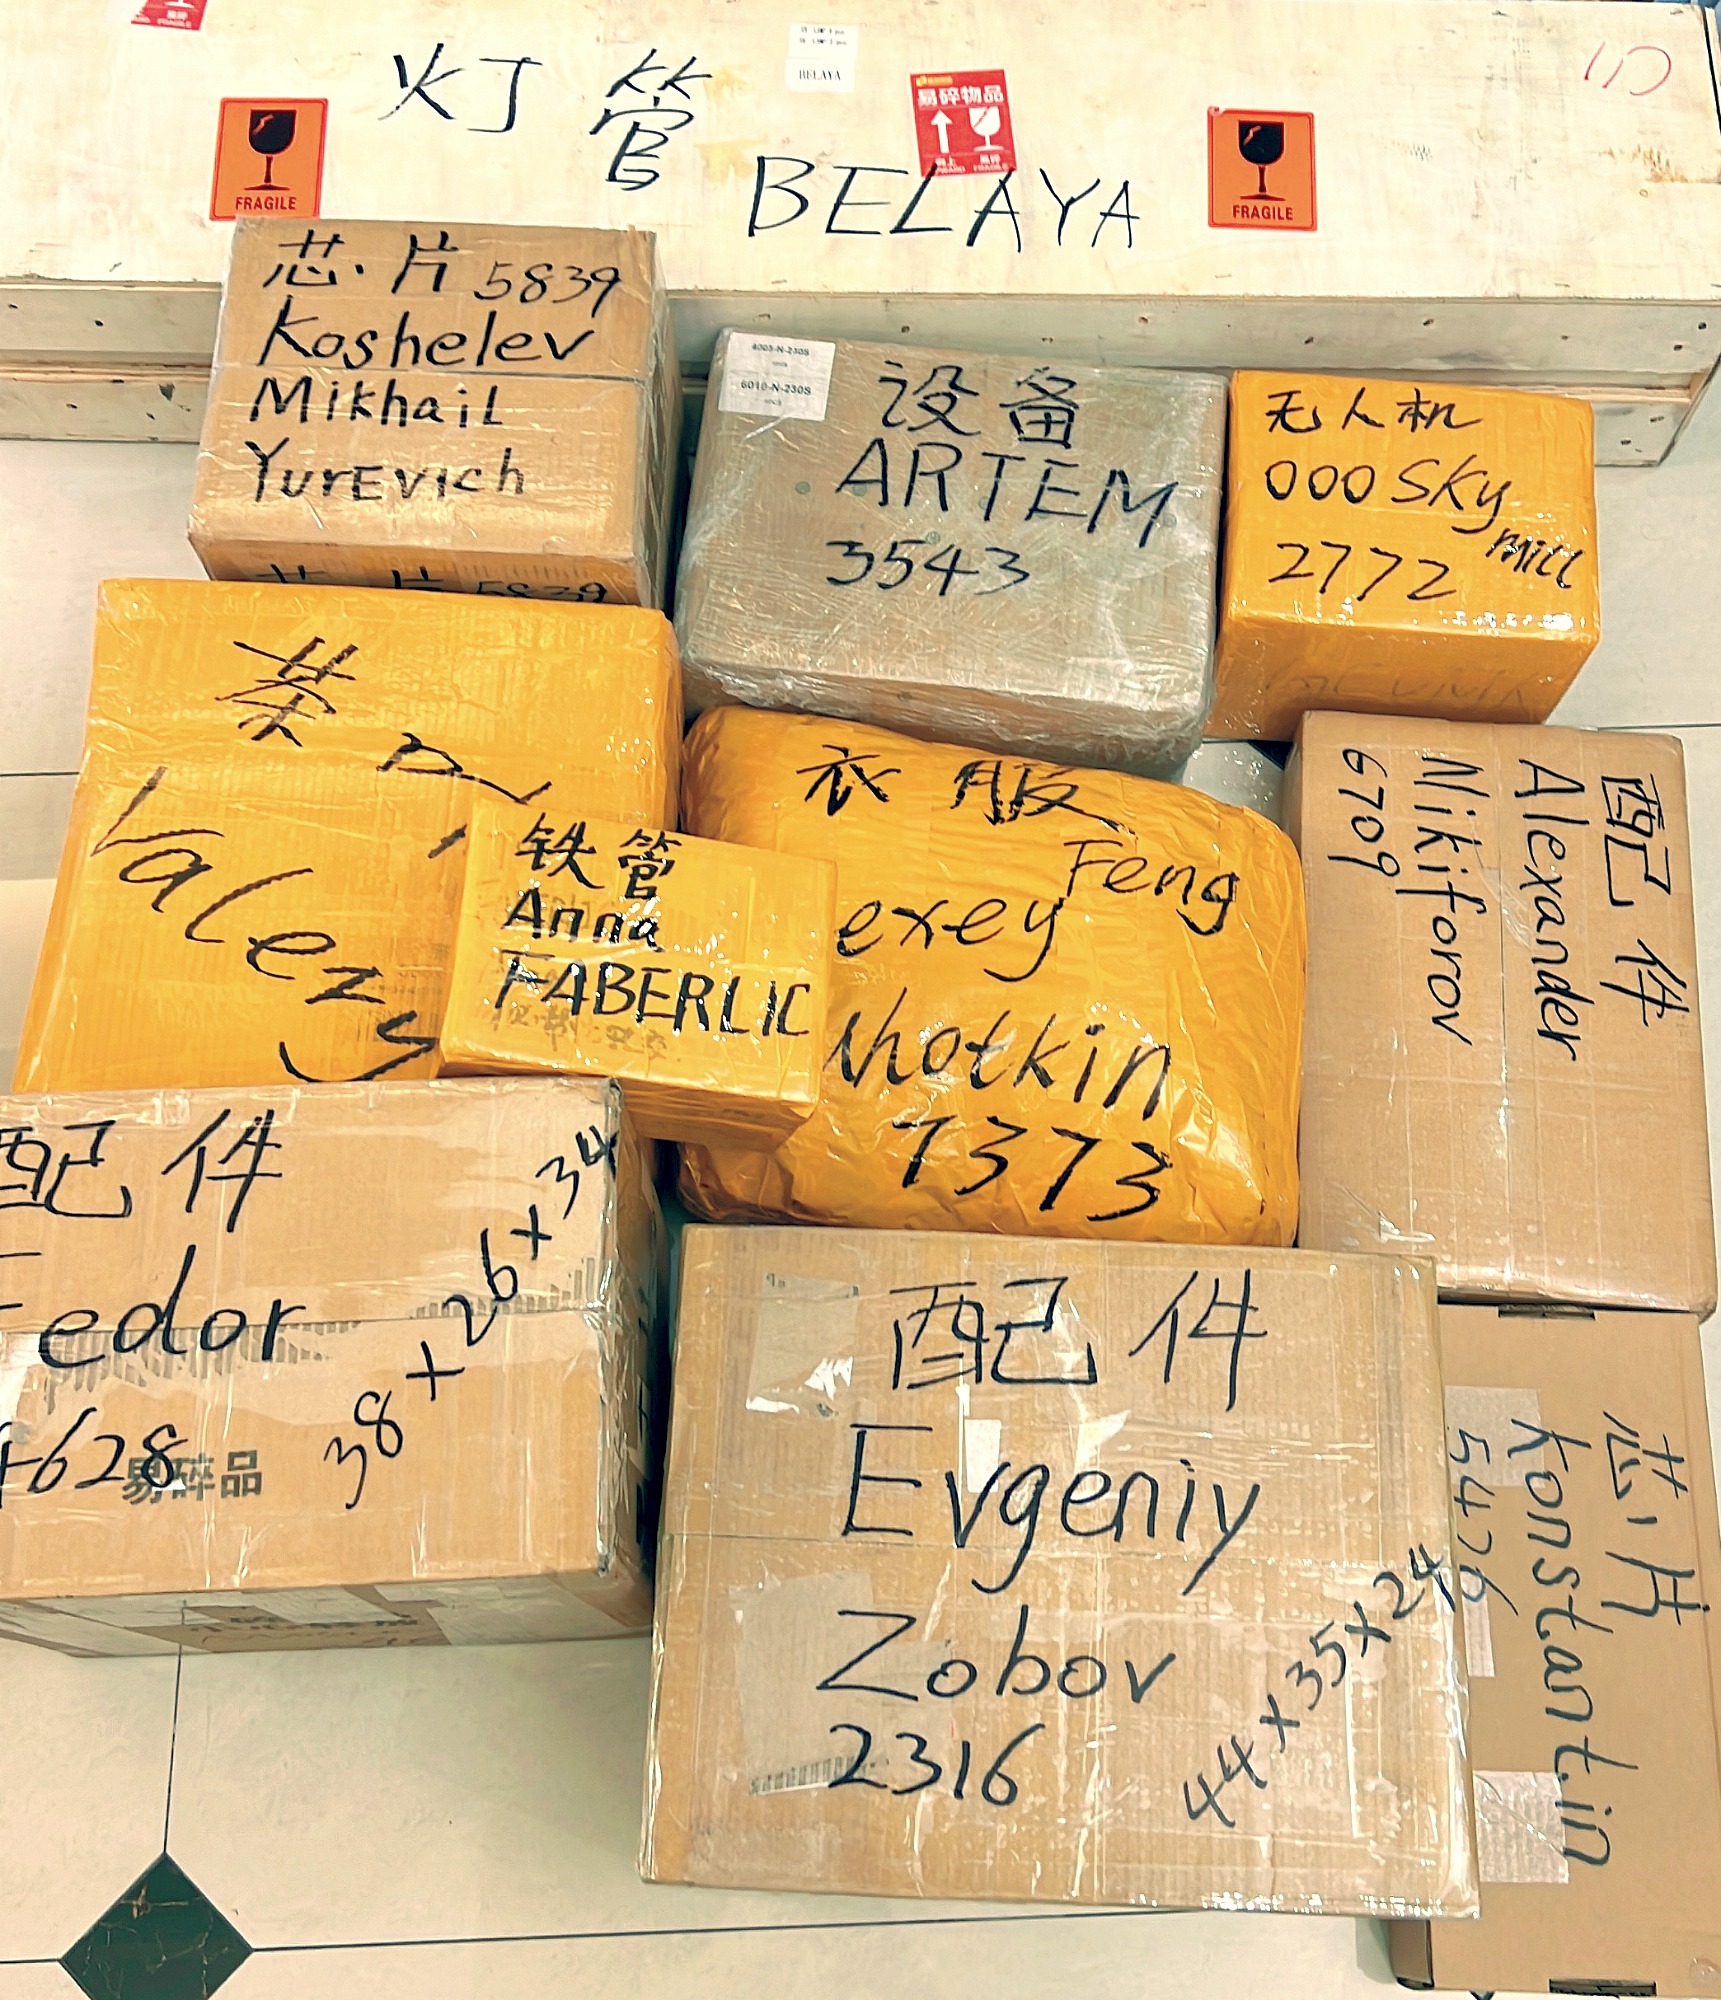 灯管
BELAYA
BELAYA
易碎物品
向上
易碎
FRAGILE
FRAGILE
FRAGILE
芯片 5839
Koshelev
Mikhail
YurEvich
芯片 5839
4003-N-230S
6010-N-230S
设备
ARTEM
3543
无人机
000 SKy
Mill
2772
茶
衣服
Feng
exey
hotkin
7373
铁管
Anna
FABERLIC
配件
Alexander
Nikiforov
6709
配件
edor
4628
38+26+34
易碎品
配件
Evgeniy
Zobov
2316
44x35x24
芯片
Konstantin
5426